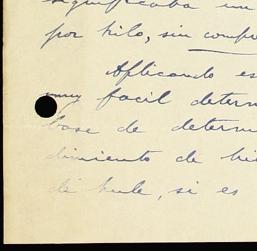 significaba un
por kilo, sin compe
Aplicando es
muy facil determ
base de determ
dimiento de hi
de hule, si es